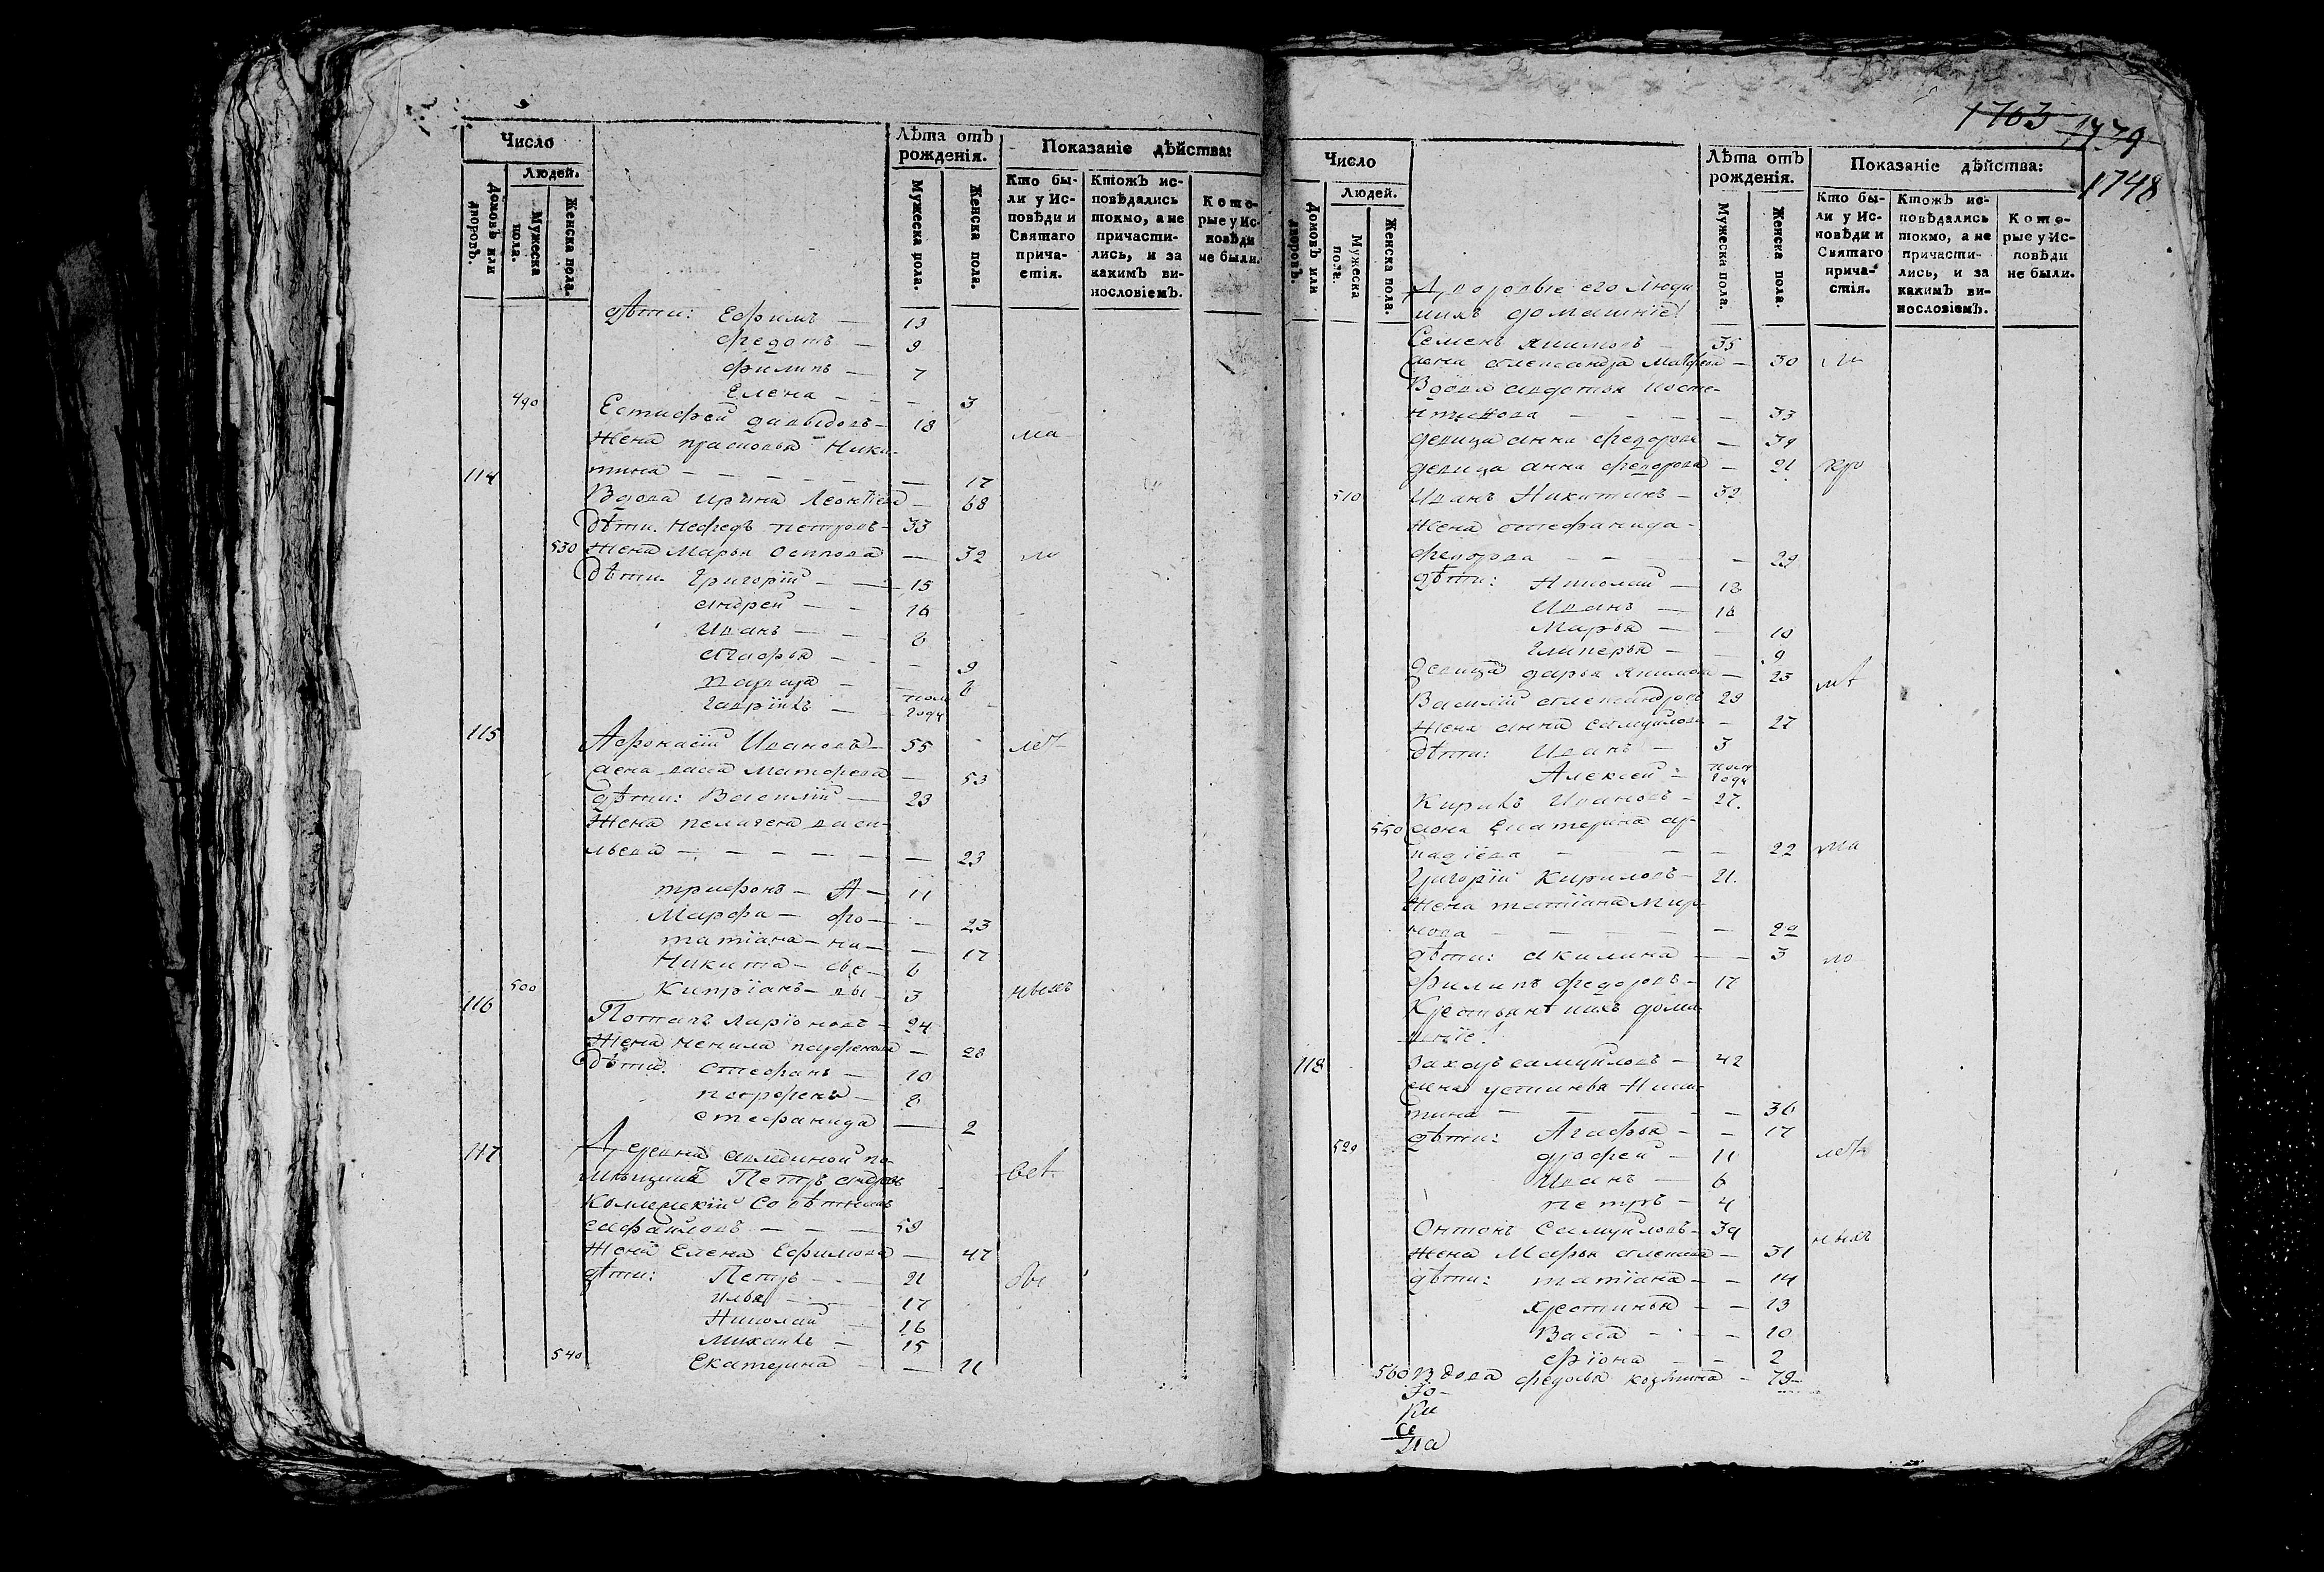 Число
Людей.
Домовъ или дворовъ.
Мужеска пола.
Женска пола.
Лѣта отъ рожденія.
Мужеска пола.
Женска пола.
Показаніе дѣйства:
Кто бы-
ли у Ис-
повѣди и
Святаго
прича-
стія.
Ктожъ ис-
повѣдались
токмо, а не
причасти-
лись, и за
какимъ ви-
нословіемъ.
Кото-
рые у Ис-
повѣди
не были.
дѣти: Ефимъ — 13
Федотъ — 9
Филипъ — 7
Елена — — 3
490 Естифей давыдовъ — 18
Жена прасковья Ники- ма
114 тина — — — — 17
Вдова ирина Леонтіева — 68
дѣти Нефедъ петровъ — 33
530 Жена Марья Осипова — 32 ло
дѣти Григорій — 15
андрей — 10
Иванъ — 8
агафья — — 9
— 6
Гаврiилъ — полъ году
115 Афонасій Ивановъ — 55
жена васа Матфеева — 53
дѣти: Василій — 23
Жена пелагея васи-
льева — — — — 23
трифонъ — А — 11
Марфа — фо — — 23
татіана — на — — 17
Никита — сье — 6
500 Кипріанъ — вы — 3 ныхъ
116 Потапъ Ларіоновъ — 24
Жена ненила парфенова — 28
дѣти: Стефанъ — 10
парфенъ — 8
стефанида — 2
117 Деревни по-
мѣщикъ Петръ всѣ
Коллежскій Совѣтникъ
— 59
Жена Елена Ефимова — 47
дѣти: Петръ — 21 вы
Илья — 17
Николай 16
Михаилъ — 15
540 Екатерина — — 11
1763 1779
1748
Число
Людей.
Домовъ или дворовъ.
Мужеска пола.
Женска пола.
Лѣта отъ рожденія.
Мужеска пола.
Женска пола.
Показаніе дѣйства:
Кто бы-
ли у Ис-
повѣди и
Святаго
прича-
стія.
Ктожъ ис-
повѣдались
токмо, а не
причасти-
лись, и за
какимъ ви-
нословіемъ.
Кото-
рые у Ис-
повѣди
не были.
Дворовые его люди
ихъ домашніе:
Семенъ якимовъ — 35
жена александра Матфеева — 30
Вдова авдотья коста-
нтинова — — — — 33
девица анна федорова — 39
девица анна федорова — 21
510 Иванъ Никитинъ — 32
Жена стефанида
федорова — — — 29
дѣти: Николай — 12
Иванъ — 10
Марья — — 10
Гликерья — — 9
девица дарья якимова — 25
Василій александровъ 29
Жена анна самуйлова — 27
дѣти: Иванъ — 3
Алексей — полъ году
Кирилъ Ивановъ — 27.
550 жена Екатерина ар-
кадіева — — — 22 ма
Григорій Кириловъ — 21.
Жена татіана Мар-
кова — — — — 20
дѣти: акилина — — 3 ло
Филипъ федоровъ — 17
Крестьянѣ ихъ дома-
шніе:
118 Захаръ самуйловъ — 42
жена устинья Ники-
тина — — — — 36
дѣти: Агафья — — 17
520 дрофей — 11
Иванъ — 6
Петръ — 4
Онтонъ Самуйловъ — 39 ныхъ
Жена Марья алексева — 31
дѣти: татіана — — 14
хрестинья — — 13
Васса — — 10
— 2
560 Вдова федосья козмина — 79